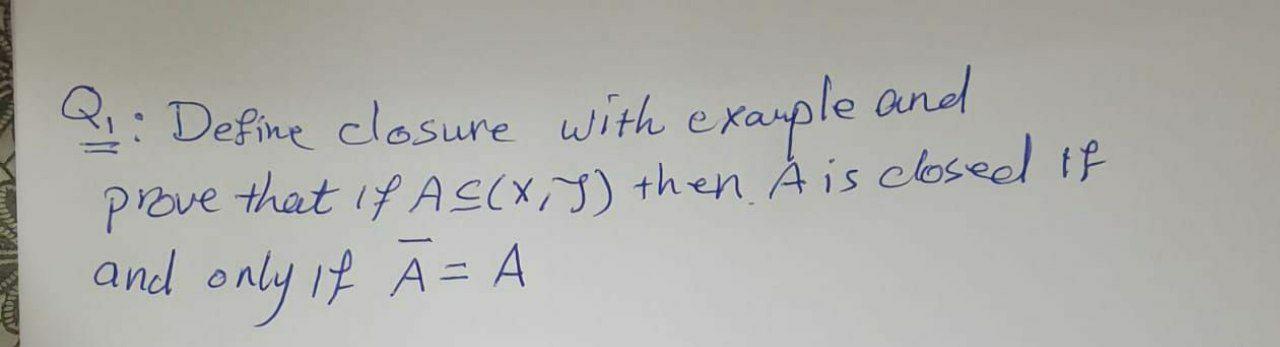 Q1: Define closure with example and
prove that if A ⊆ (X, J) then A is closed if
and only if A̅ = A